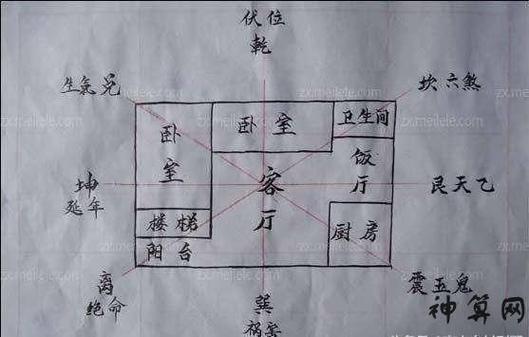 伏位
乾
生氣兑
坎六煞
卧室
卧室
卫生间
饭厅
坤
延年
客厅
艮天乙
楼梯
阳台
厨房
离
绝命
巽
祸害
震五鬼
神算网
zx.meilele.com
zx.meilele.com
zx.meilele.com